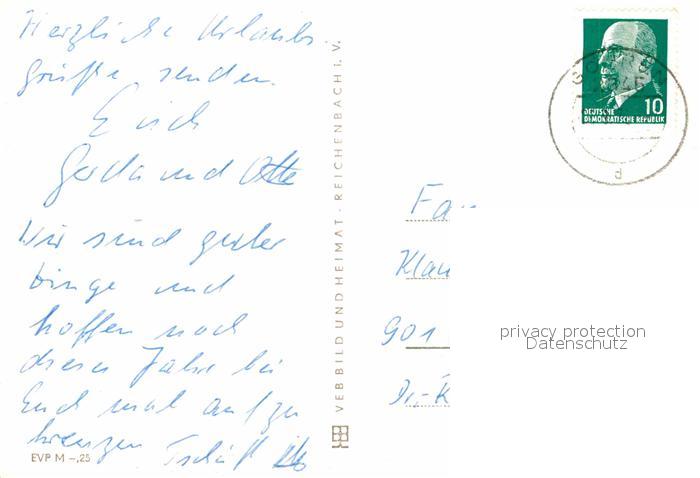 Herzliche Urlaubs-
grüße senden
Euch
Gerda und Otto
Wir sind guter
Dinge und
hoffen noch
dieses Jahr bei
Euch mal aufzu
kreuzen Tschüß
EVP M -,25
VEB BILD UND HEIMAT · REICHENBACH I. V.
10
DEUTSCHE
DEMOKRATISCHE REPUBLIK
d
Fa
Klau
901
Dr.-K
privacy protection
Datenschutz